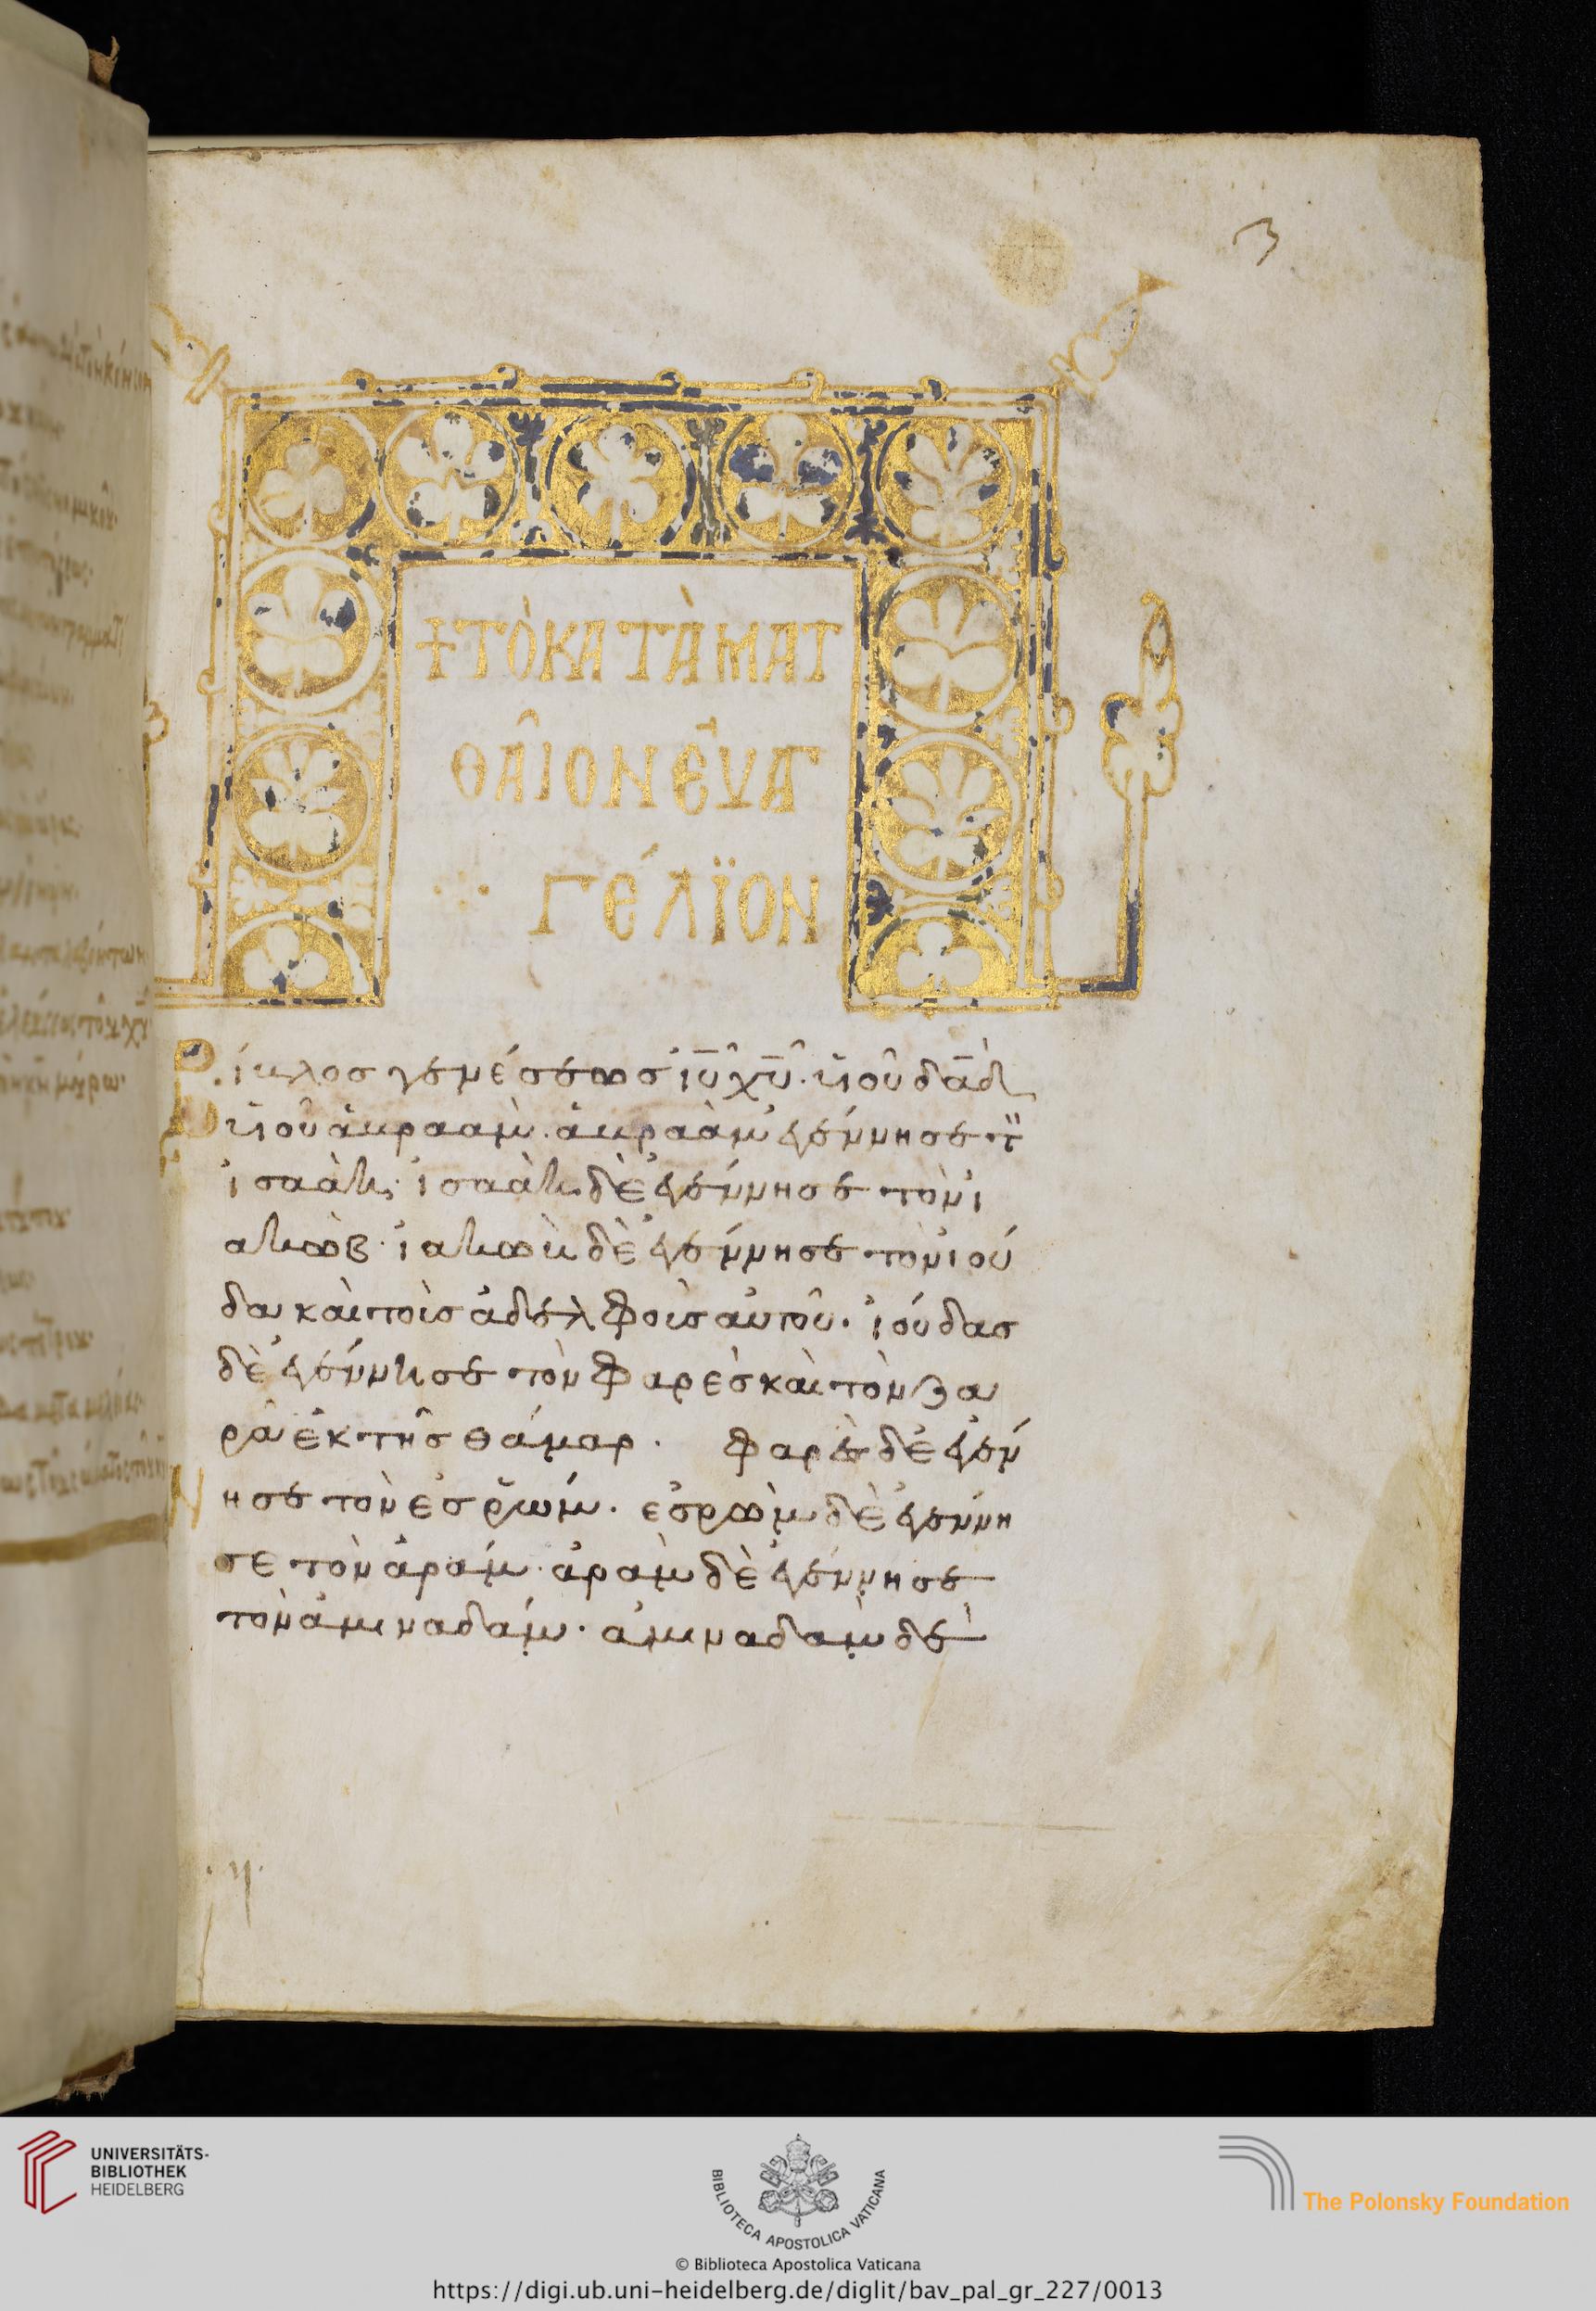 3
☩ ΤὸΚΑΤὰ ΜΑΤ
ΘΑῖΟΝ ἘΥΑΓ
ΓέΛΪΟΝ
Βίβλοσ γενέσεωσ ἰ̅υ̅ χ̅υ̅· υἱοῦ δ̅α̅δ̅
υἱοῦ ἀβραάμ· ἀβραὰμ ἐγέννησε τ̀
ἰσαάκ· ἰσαὰκ δὲ ἐγέννησε τὸν ἰ
ακώβ· ἰακὼβ δὲ ἐγέννησε τὸν ἰού
δαν καὶ τοὺσ ἀδελφοὺσ αὐτοῦ· ἰούδασ
δὲ ἐγέννησε τὸν φαρὲσ καὶ τὸν ζα
ρὰ ἐκ τῆσ θάμαρ· φαρὲσ δὲ ἐγέν
νησε τὸν ἐσρώμ· ἐσρὼμ δὲ ἐγέννη
σε τὸν ἀράμ· ἀρὰμ δὲ ἐγέννησε
τὸν ἀμιναδάμ· ἀμιναδὰμ δὲ
UNIVERSITÄTS-
BIBLIOTHEK
HEIDELBERG
BIBLIOTECA APOSTOLICA VATICANA
The Polonsky Foundation
© Biblioteca Apostolica Vaticana
https://digi.ub.uni-heidelberg.de/diglit/bav_pal_gr_227/0013